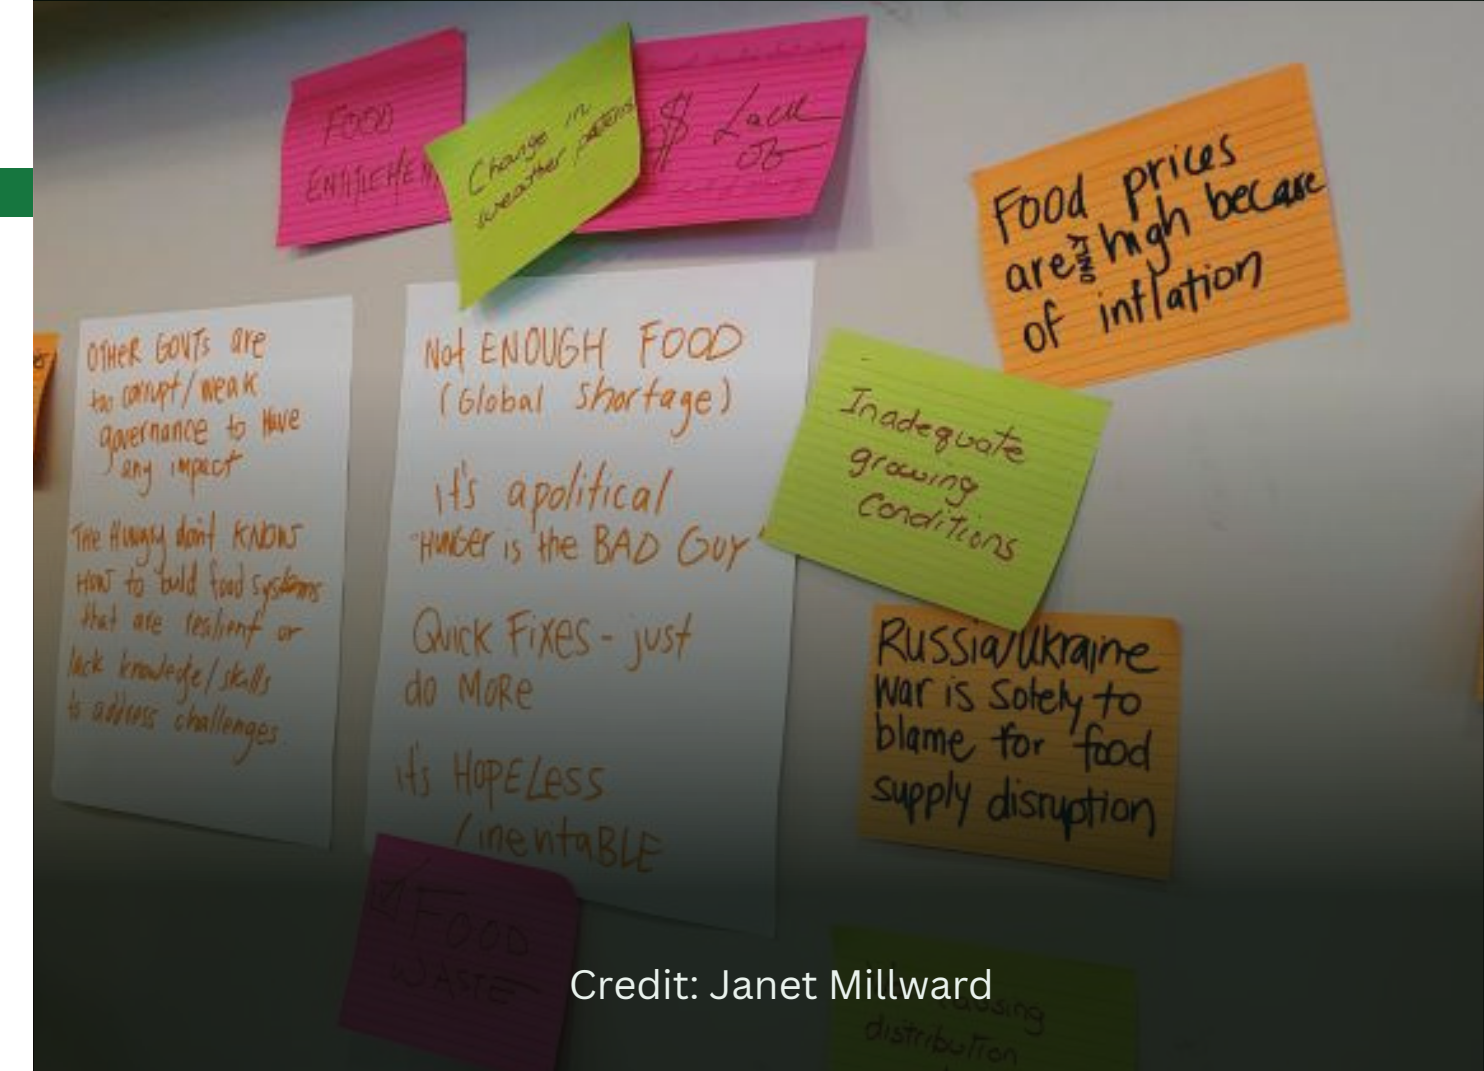 FOOD
ENTITLEMEN
Change in
weather patterns
$ Lack
of
Food prices
are only high because
of inflation
OTHER GOVTs are
too corrupt/weak
governance to Have
any impact
THE HUNGRY don't KNOW
HOW to build food systems
that are resilient or
lack knowledge/skills
to address challenges
Not ENOUGH FOOD
(Global Shortage)
it's apolitical
"HUNGER is the BAD GUY
Quick Fixes - just
do MORE
it's HOPELESS
/inevitaBLE
Inadequate
growing
Conditions
Russia/Ukraine
war is solely to
blame for food
supply disruption
FOOD
WASTE
Credit: Janet Millward
distribution